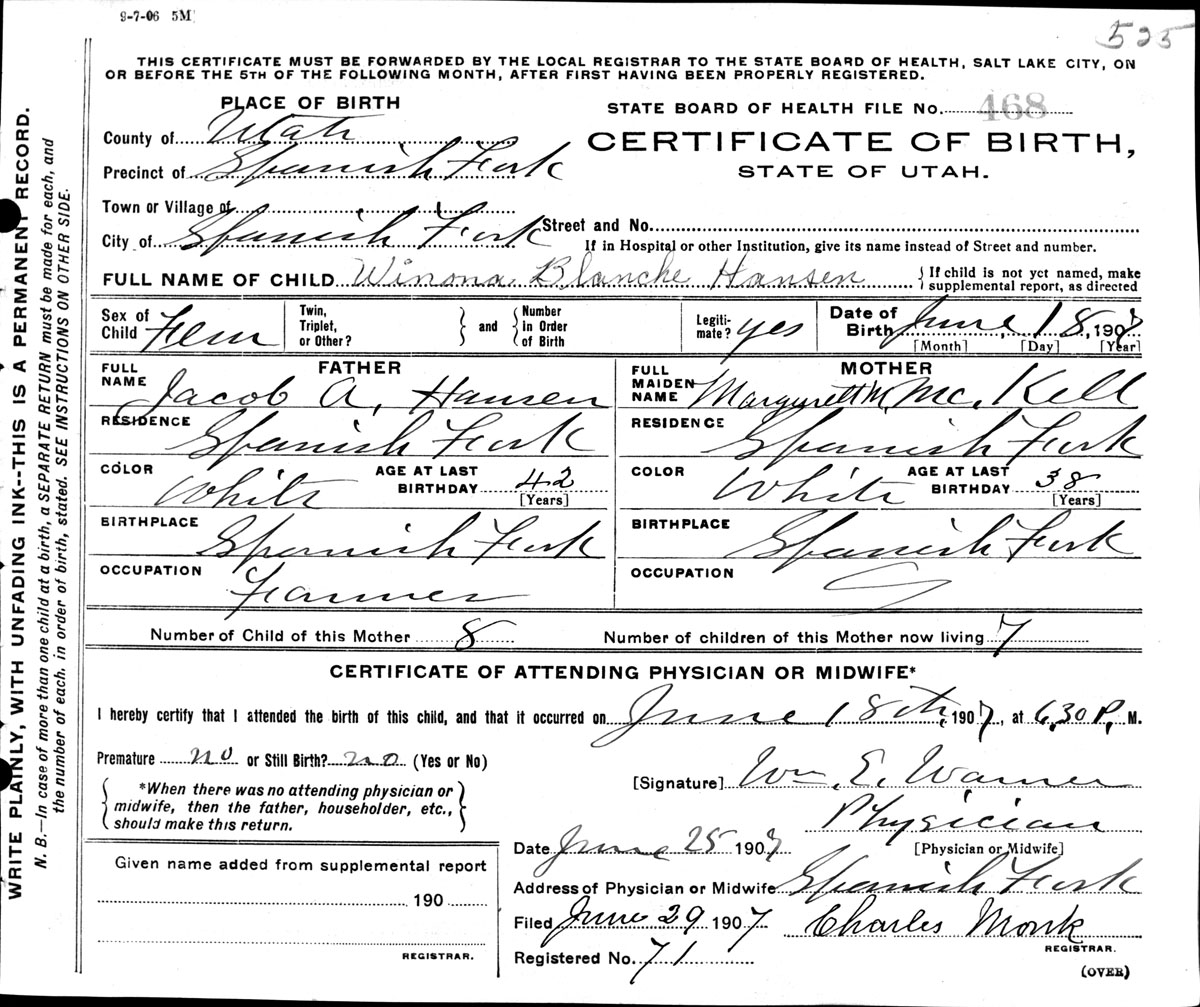 9-7-06 5M
525
THIS CERTIFICATE MUST BE FORWARDED BY THE LOCAL REGISTRAR TO THE STATE BOARD OF HEALTH, SALT LAKE CITY, ON
OR BEFORE THE 5TH OF THE FOLLOWING MONTH, AFTER FIRST HAVING BEEN PROPERLY REGISTERED.
PLACE OF BIRTH
STATE BOARD OF HEALTH FILE No. 468
County of Utah
CERTIFICATE OF BIRTH,
Precinct of Spanish Fork
STATE OF UTAH.
Town or Village of
City of Spanish Fork Street and No.
If in Hospital or other Institution, give its name instead of Street and number.
FULL NAME OF CHILD Winona Blanche Hansen } If child is not yet named, make
supplemental report, as directed
Sex of Child Fem Twin, Triplet, or Other? } and { Number In Order of Birth Legiti-mate? yes Date of Birth June 18, 1907
[Month] [Day] [Year]
FATHER
FULL NAME Jacob A. Hansen
RESIDENCE Spanish Fork
COLOR White AGE AT LAST BIRTHDAY 42
[Years]
BIRTHPLACE Spanish Fork
OCCUPATION Farmer
MOTHER
FULL MAIDEN NAME Margarett M. Mc. Kell
RESIDENCE Spanish Fork
COLOR White AGE AT LAST BIRTHDAY 38
[Years]
BIRTHPLACE Spanish Fork
OCCUPATION
Number of Child of this Mother 8 Number of children of this Mother now living 7
CERTIFICATE OF ATTENDING PHYSICIAN OR MIDWIFE*
I hereby certify that I attended the birth of this child, and that it occurred on June 18th, 1907, at 6,30 P. M.
Premature no or Still Birth? no (Yes or No)
[Signature] Wm. E. Warner
*When there was no attending physician or
midwife, then the father, householder, etc.,
should make this return.
Physician
[Physician or Midwife]
Date June 25 1907
Given name added from supplemental report
190
REGISTRAR.
Address of Physician or Midwife Spanish Fork
Filed June 29 1907 Charles Monk
REGISTRAR.
Registered No. 71
(OVER)
WRITE PLAINLY, WITH UNFADING INK--THIS IS A PERMANENT RECORD.
N. B.—In case of more than one child at a birth, a SEPARATE RETURN must be made for each, and
the number of each, in order of birth, stated. SEE INSTRUCTIONS ON OTHER SIDE.